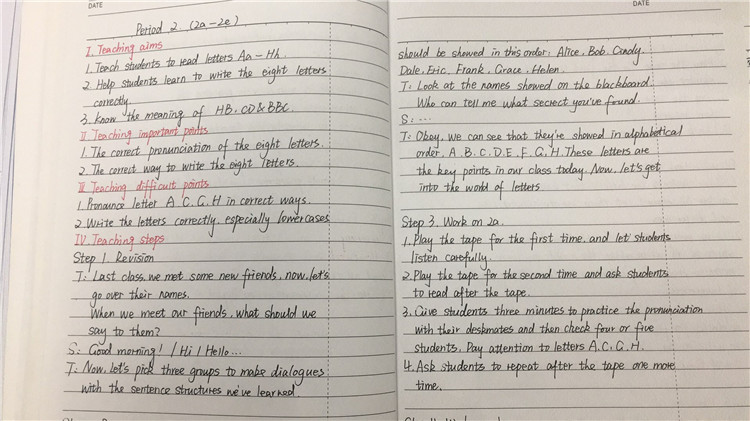 DATE
Period 2 (2a-2e)
I. Teaching aims
1. Teach students to read letters Aa-Hh.
2. Help students learn to write the eight letters
correctly.
3. Know the meaning of HB. CD & BBC.
II. Teaching important points
1. The correct pronunciation of the eight letters.
2. The correct way to write the eight letters.
III. Teaching difficult points
1. Pronounce letter A. C. G. H in correct ways.
2. Write the letters correctly, especially lowercases
IV. Teaching steps
Step 1. Revision
T: Last class, we met some new friends, now, let's
go over their names.
When we meet our friends, what should we
say to them?
S: Good morning! / Hi / Hello...
T: Now, let's pick three groups to make dialogues
with the sentence structures we've learned.
DATE
should be showed in this order: Alice, Bob, Cindy,
Dale, Eric, Frank, Grace, Helen.
T: Look at the names showed on the blackboard.
Who can tell me what secrect you've found.
S: ...
T: Okey, we can see that they're showed in alphabetical
order, A. B. C. D. E. F. G. H. These letters are
the key points in our class today. Now, let's get
into the world of letters
Step 3. Work on 2a.
1. Play the tape for the first time, and let students
listen carefully.
2. Play the tape for the second time and ask students
to read after the tape.
3. Give students three minutes to practice the pronunciation
with their deskmates and then check four or five
students. Pay attention to letters A. C. G. H.
4. Ask students to repeat after the tape one more
time.